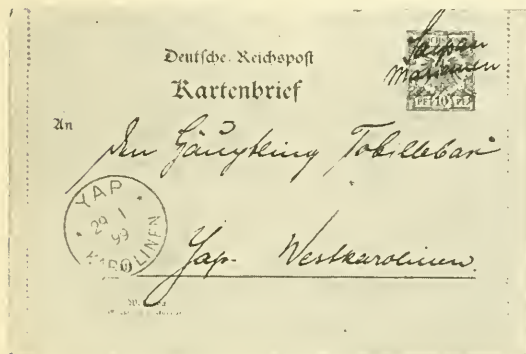 Deutsche Reichspost
Kartenbrief
Saipan
Marianen
PF 10 PF
An
Den Häuptling Tobillebas
YAP
29 1
99
KAROLINEN
Yap. Westkarolinen.